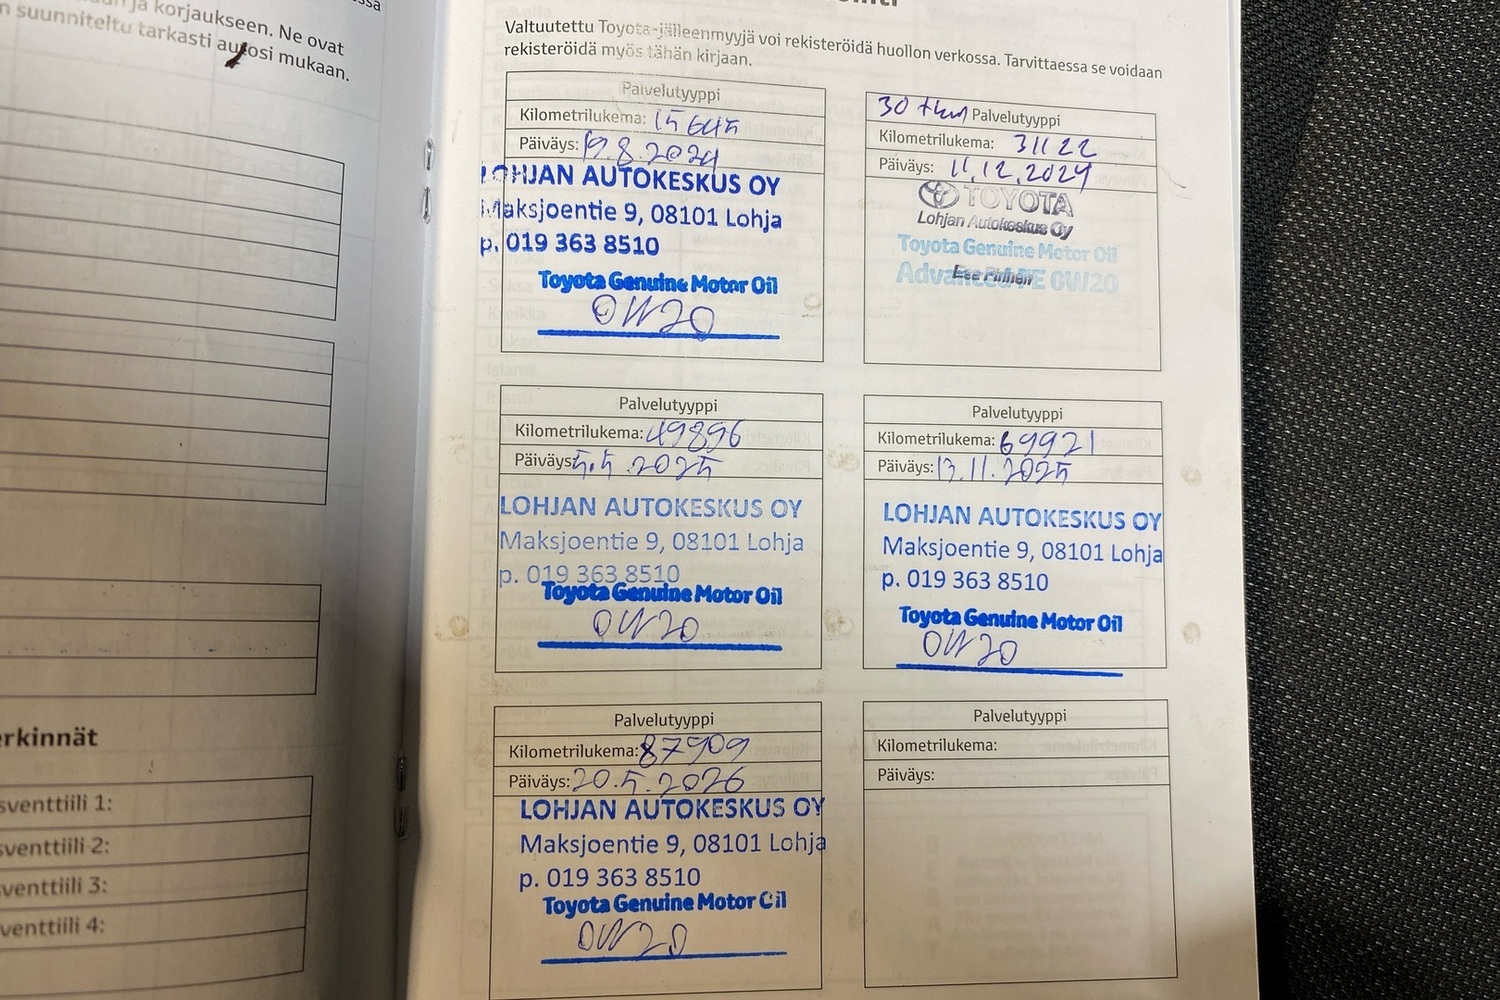 ja korjaukseen. Ne ovat
n suunniteltu tarkasti autosi mukaan.
erkinnät
sventtiili 1:
sventtiili 2:
venttiili 3:
venttiili 4:
Valtuutettu Toyota-jälleenmyyjä voi rekisteröidä huollon verkossa. Tarvittaessa se voidaan
rekisteröidä myös tähän kirjaan.
Palvelutyyppi
Kilometrilukema: 15645
Päiväys: 19.8.2024
LOHJAN AUTOKESKUS OY
Maksjoentie 9, 08101 Lohja
p. 019 363 8510
Toyota Genuine Motor Oil
0W20
30 tkm Palvelutyyppi
Kilometrilukema: 31122
Päiväys: 11.12.2024
TOYOTA
Lohjan Autokeskus Oy
Toyota Genuine Motor Oil
Advanced FE 0W20
Palvelutyyppi
Kilometrilukema: 49896
Päiväys: 5.5.2025
LOHJAN AUTOKESKUS OY
Maksjoentie 9, 08101 Lohja
p. 019 363 8510
Toyota Genuine Motor Oil
0W20
Palvelutyyppi
Kilometrilukema: 69921
Päiväys: 13.11.2025
LOHJAN AUTOKESKUS OY
Maksjoentie 9, 08101 Lohja
p. 019 363 8510
Toyota Genuine Motor Oil
0W20
Palvelutyyppi
Kilometrilukema: 87909
Päiväys: 20.5.2026
LOHJAN AUTOKESKUS OY
Maksjoentie 9, 08101 Lohja
p. 019 363 8510
Toyota Genuine Motor Oil
0W20
Palvelutyyppi
Kilometrilukema:
Päiväys: